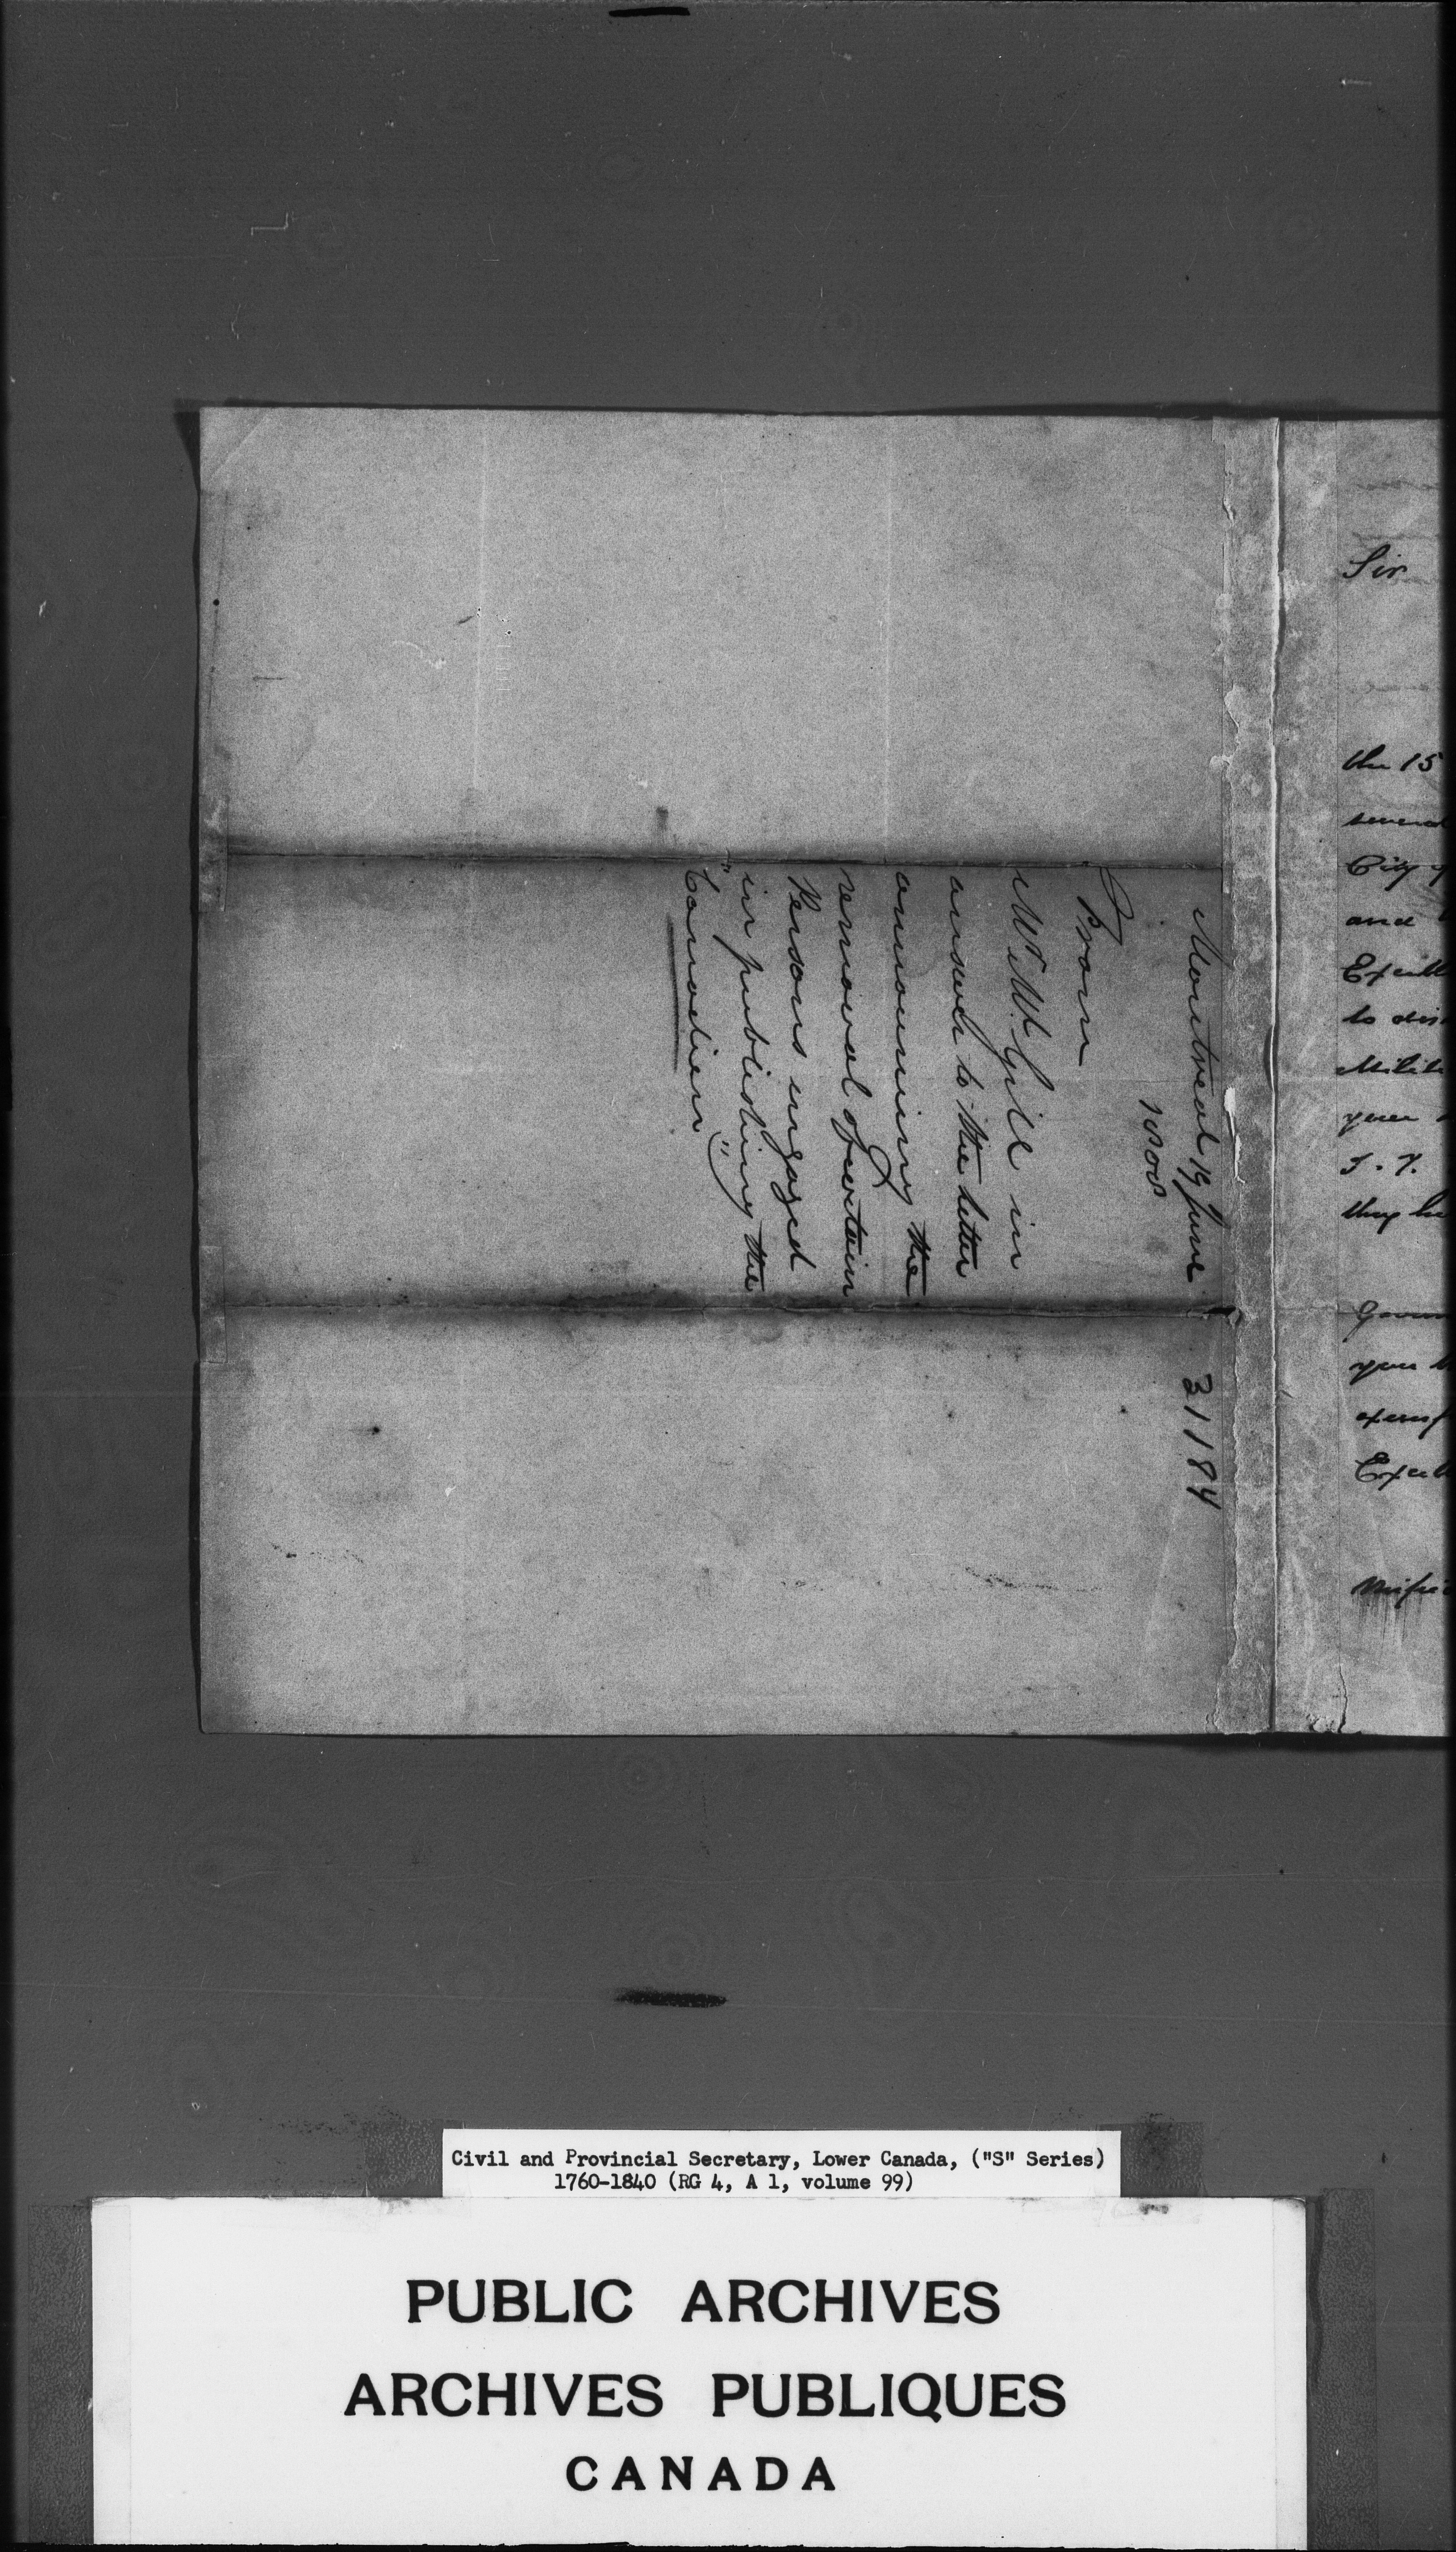 Montreal 19 June
1808
From
Mr McGill in
answer to the letter
announcing the
removal of certain
Persons engaged
in publishing the
"Canadien"
31184
Sir
the 15
several
City
and
to dis
Milit
your
J. T.
they
your
Civil and Provincial Secretary, Lower Canada, ("S" Series)
1760-1840 (RG 4, A 1, volume 99)
PUBLIC ARCHIVES
ARCHIVES PUBLIQUES
CANADA